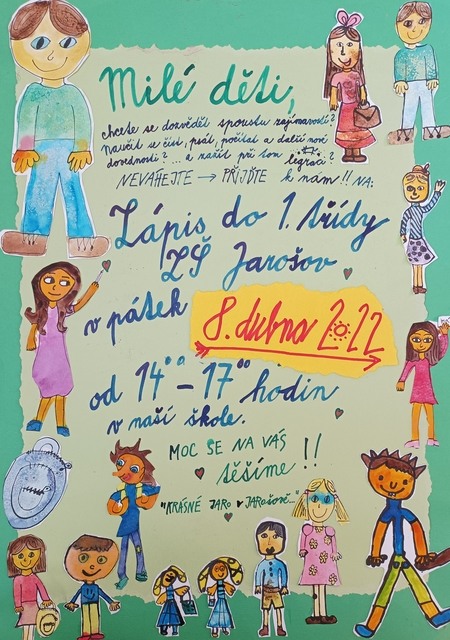 Milé děti,
chcete se dozvědět spoustu zajímavostí?
Naučit se číst, psát, počítat a další nové
dovednosti? ... a nažít při tom legraci?
NEVÁHEJTE → PŘIJĎTE k nám!! NA:
Zápis do 1. třídy
ZŠ Jarošov
v pátek
8. dubna 2022
od 14°° – 17°° hodin
v naší škole.
MOC SE NA VÁS
těšíme!!
"KRÁSNÉ JARO v JAROŠOVĚ..."